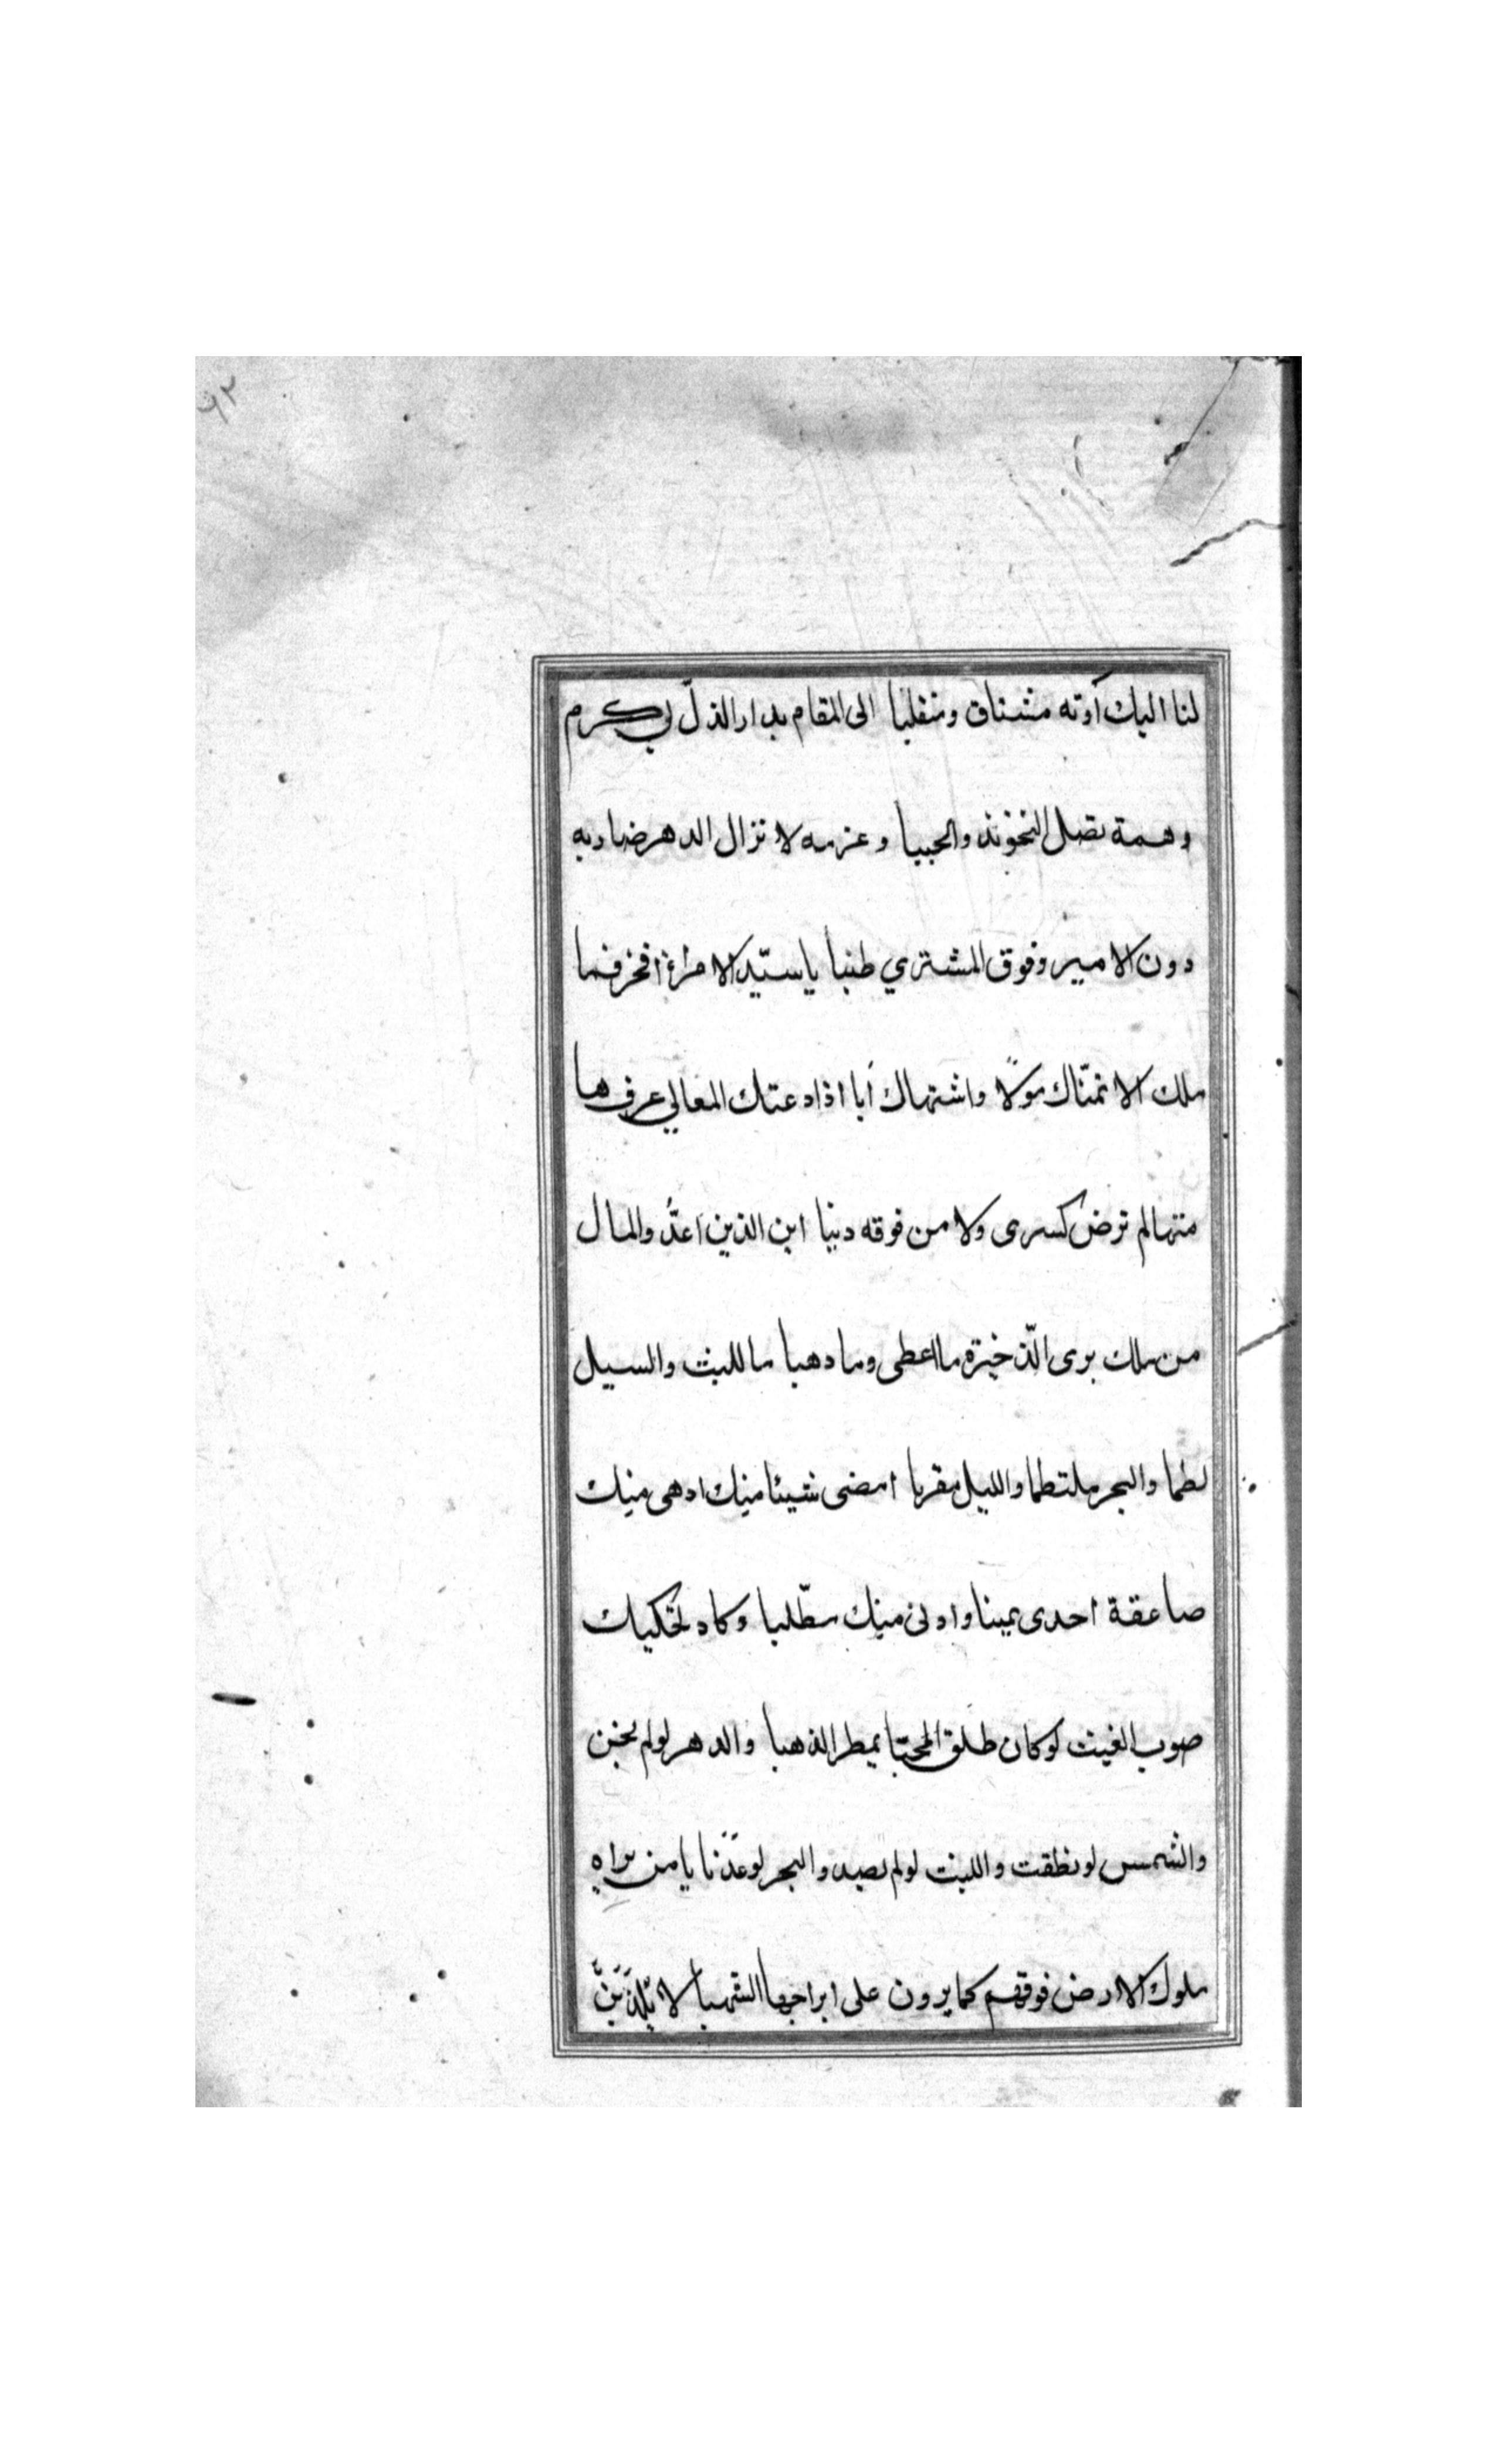 ٦٢
لنا اليك أوته مشتاق ومنقلبا الى المقام بدار الذلّ لى كرم
وهمة تصل التخويذ والجبيا وعزمه لا تزال الدهر ضاربه
دون الامير وفوق المشتري طنبا ياسيّد الامراء افخر فما
ملك الا تمنّاك مولاً واشتهاك أبا اذا دعتك المعالي عرف ها
منها لم ترض كسرى ولا من فوقه دنبا اين الذين اعدُّوا المال
من ملك يرى الذّخيرة ما اعطى وما وهبا ما الليث والسيل
لطما والبحر ملتطما والليل مقربا امضى شيئا منك ادهى منك
صاعقة اجدى يمينا وادنى منك مطّلبا وكاد تحكيك
صوب الغيث لو كان طلق المحيّا يمطر الذهبا والدهر لو لم يخن
والشمس لو نطقت والليث لو لم يصد والبحر لو عذبا يا من يراه
ملوك الارض فوقهم كما يرون على ابراجها الشهبا لا